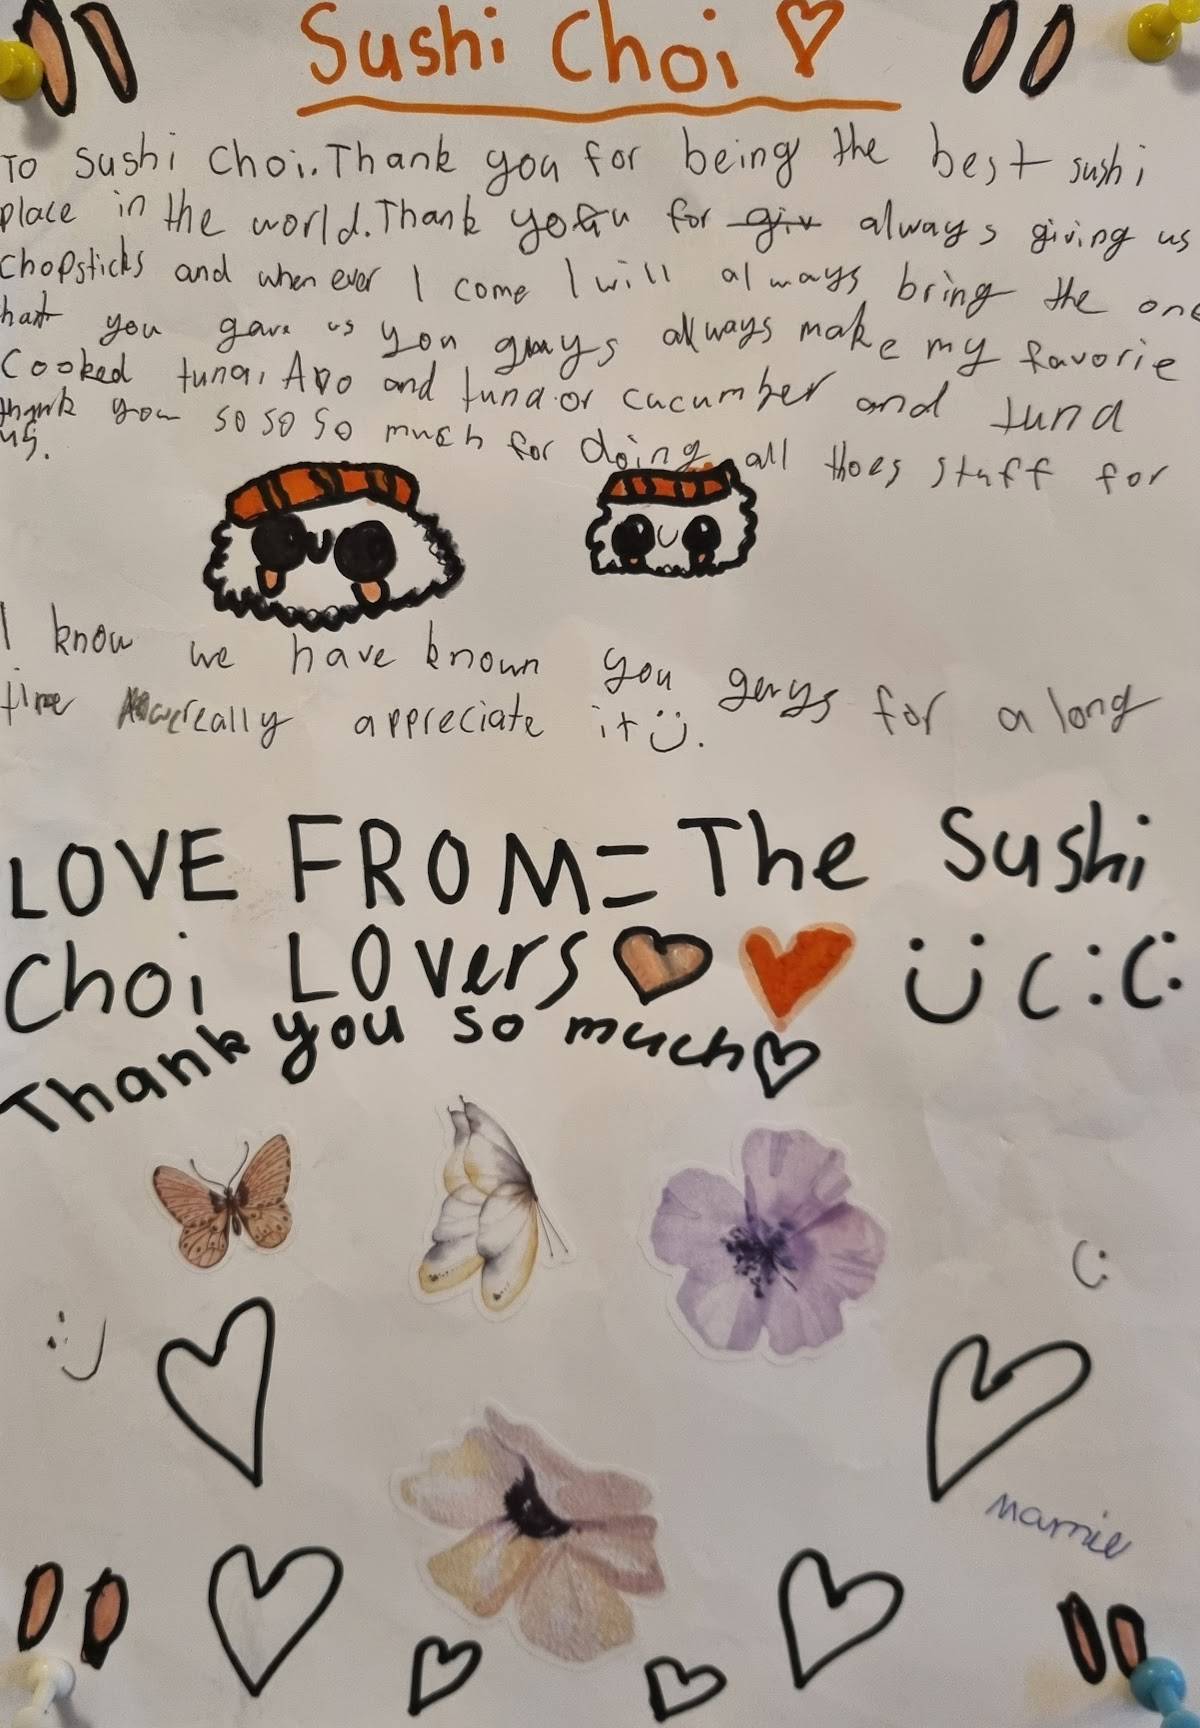 Sushi Choi
To Sushi Choi. Thank you for being the best sushi
place in the world. Thank you for giv always giving us
chopsticks and when ever I come I will always bring the one
you gave us you guys always make my favorie
Cooked tuna, Avo and tuna or cucumber and tuna
thank you so so so much for doing all thoes stuff for
us.
I know we have known you guys for a long
time really appreciate it :).
LOVE FROM= The Sushi
Choi LOvers :) (: (:
Thank you so much
(:
:)
Marnie